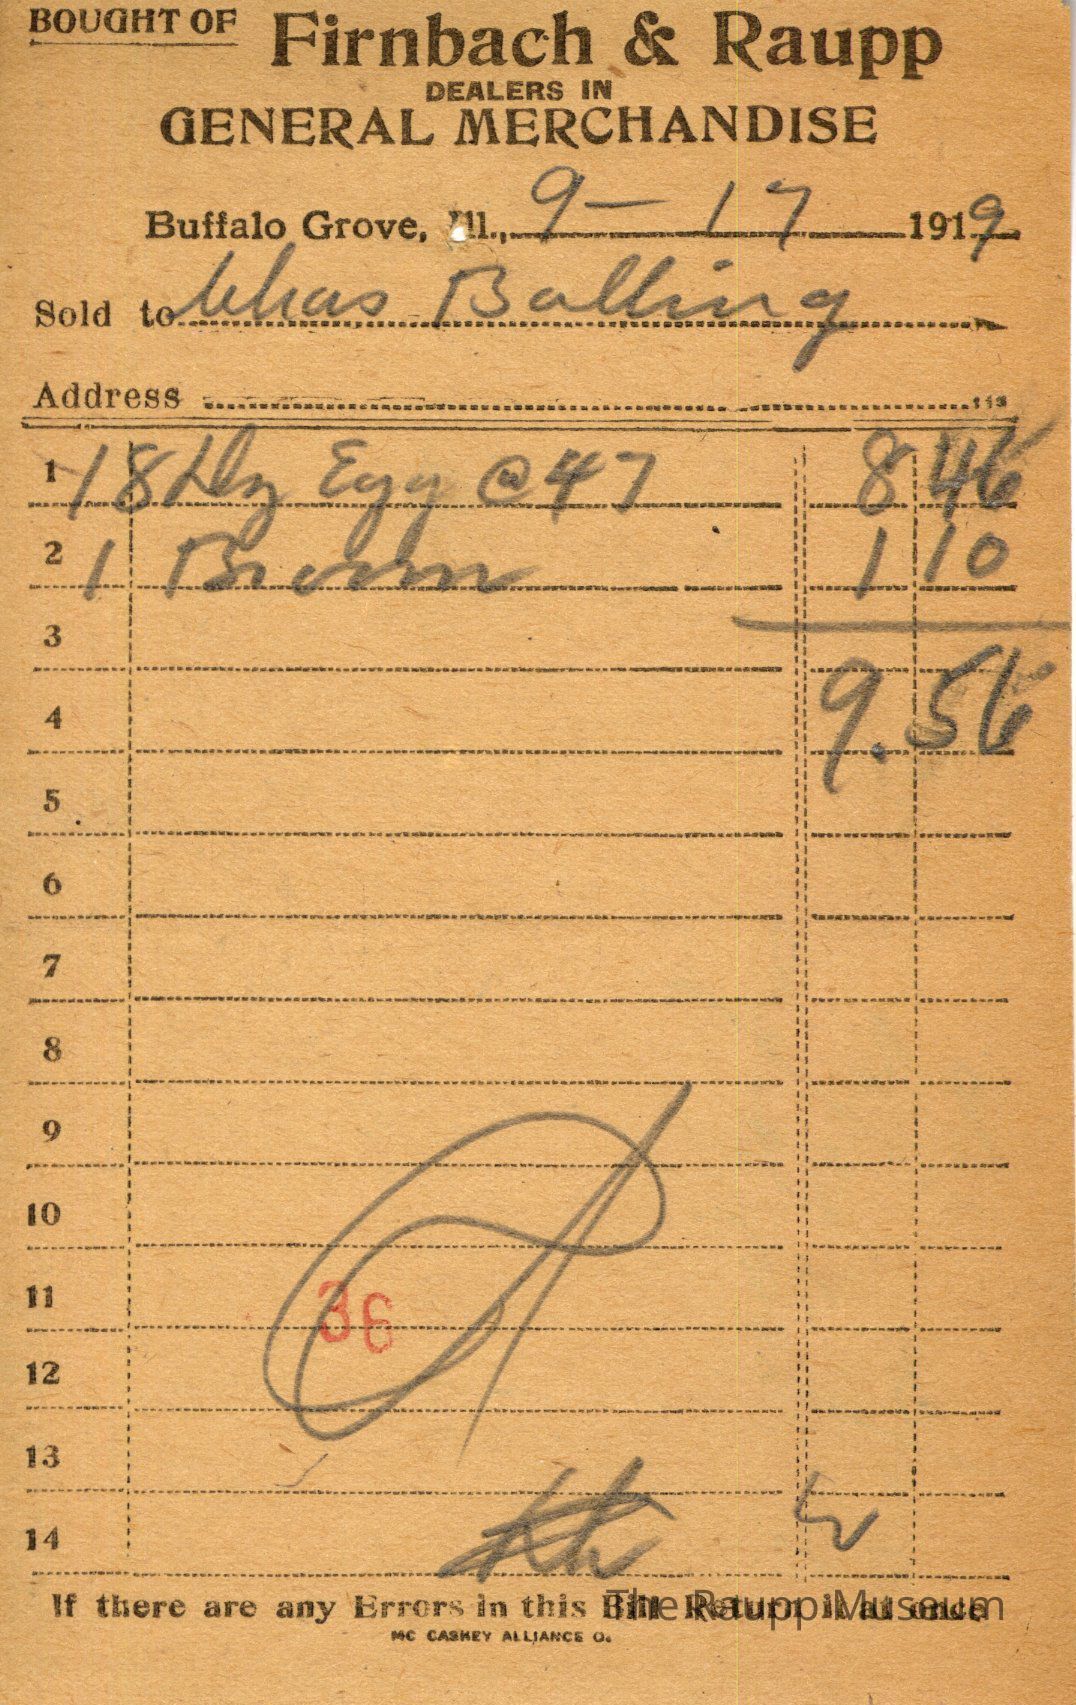 BOUGHT OF Firnbach & Raupp
DEALERS IN
GENERAL MERCHANDISE
Buffalo Grove, Ill., 9-17 1919
Sold to Chas Bolling
Address
1 18 Dz Egg @ 47 8 46
2 1 Broom 1 10
3
4 9.56
5
6
7
8
9
10
11 36
12
13
14
If there are any Errors in this Bill Return it at once
The Raupp Museum
MC CASKEY ALLIANCE O.